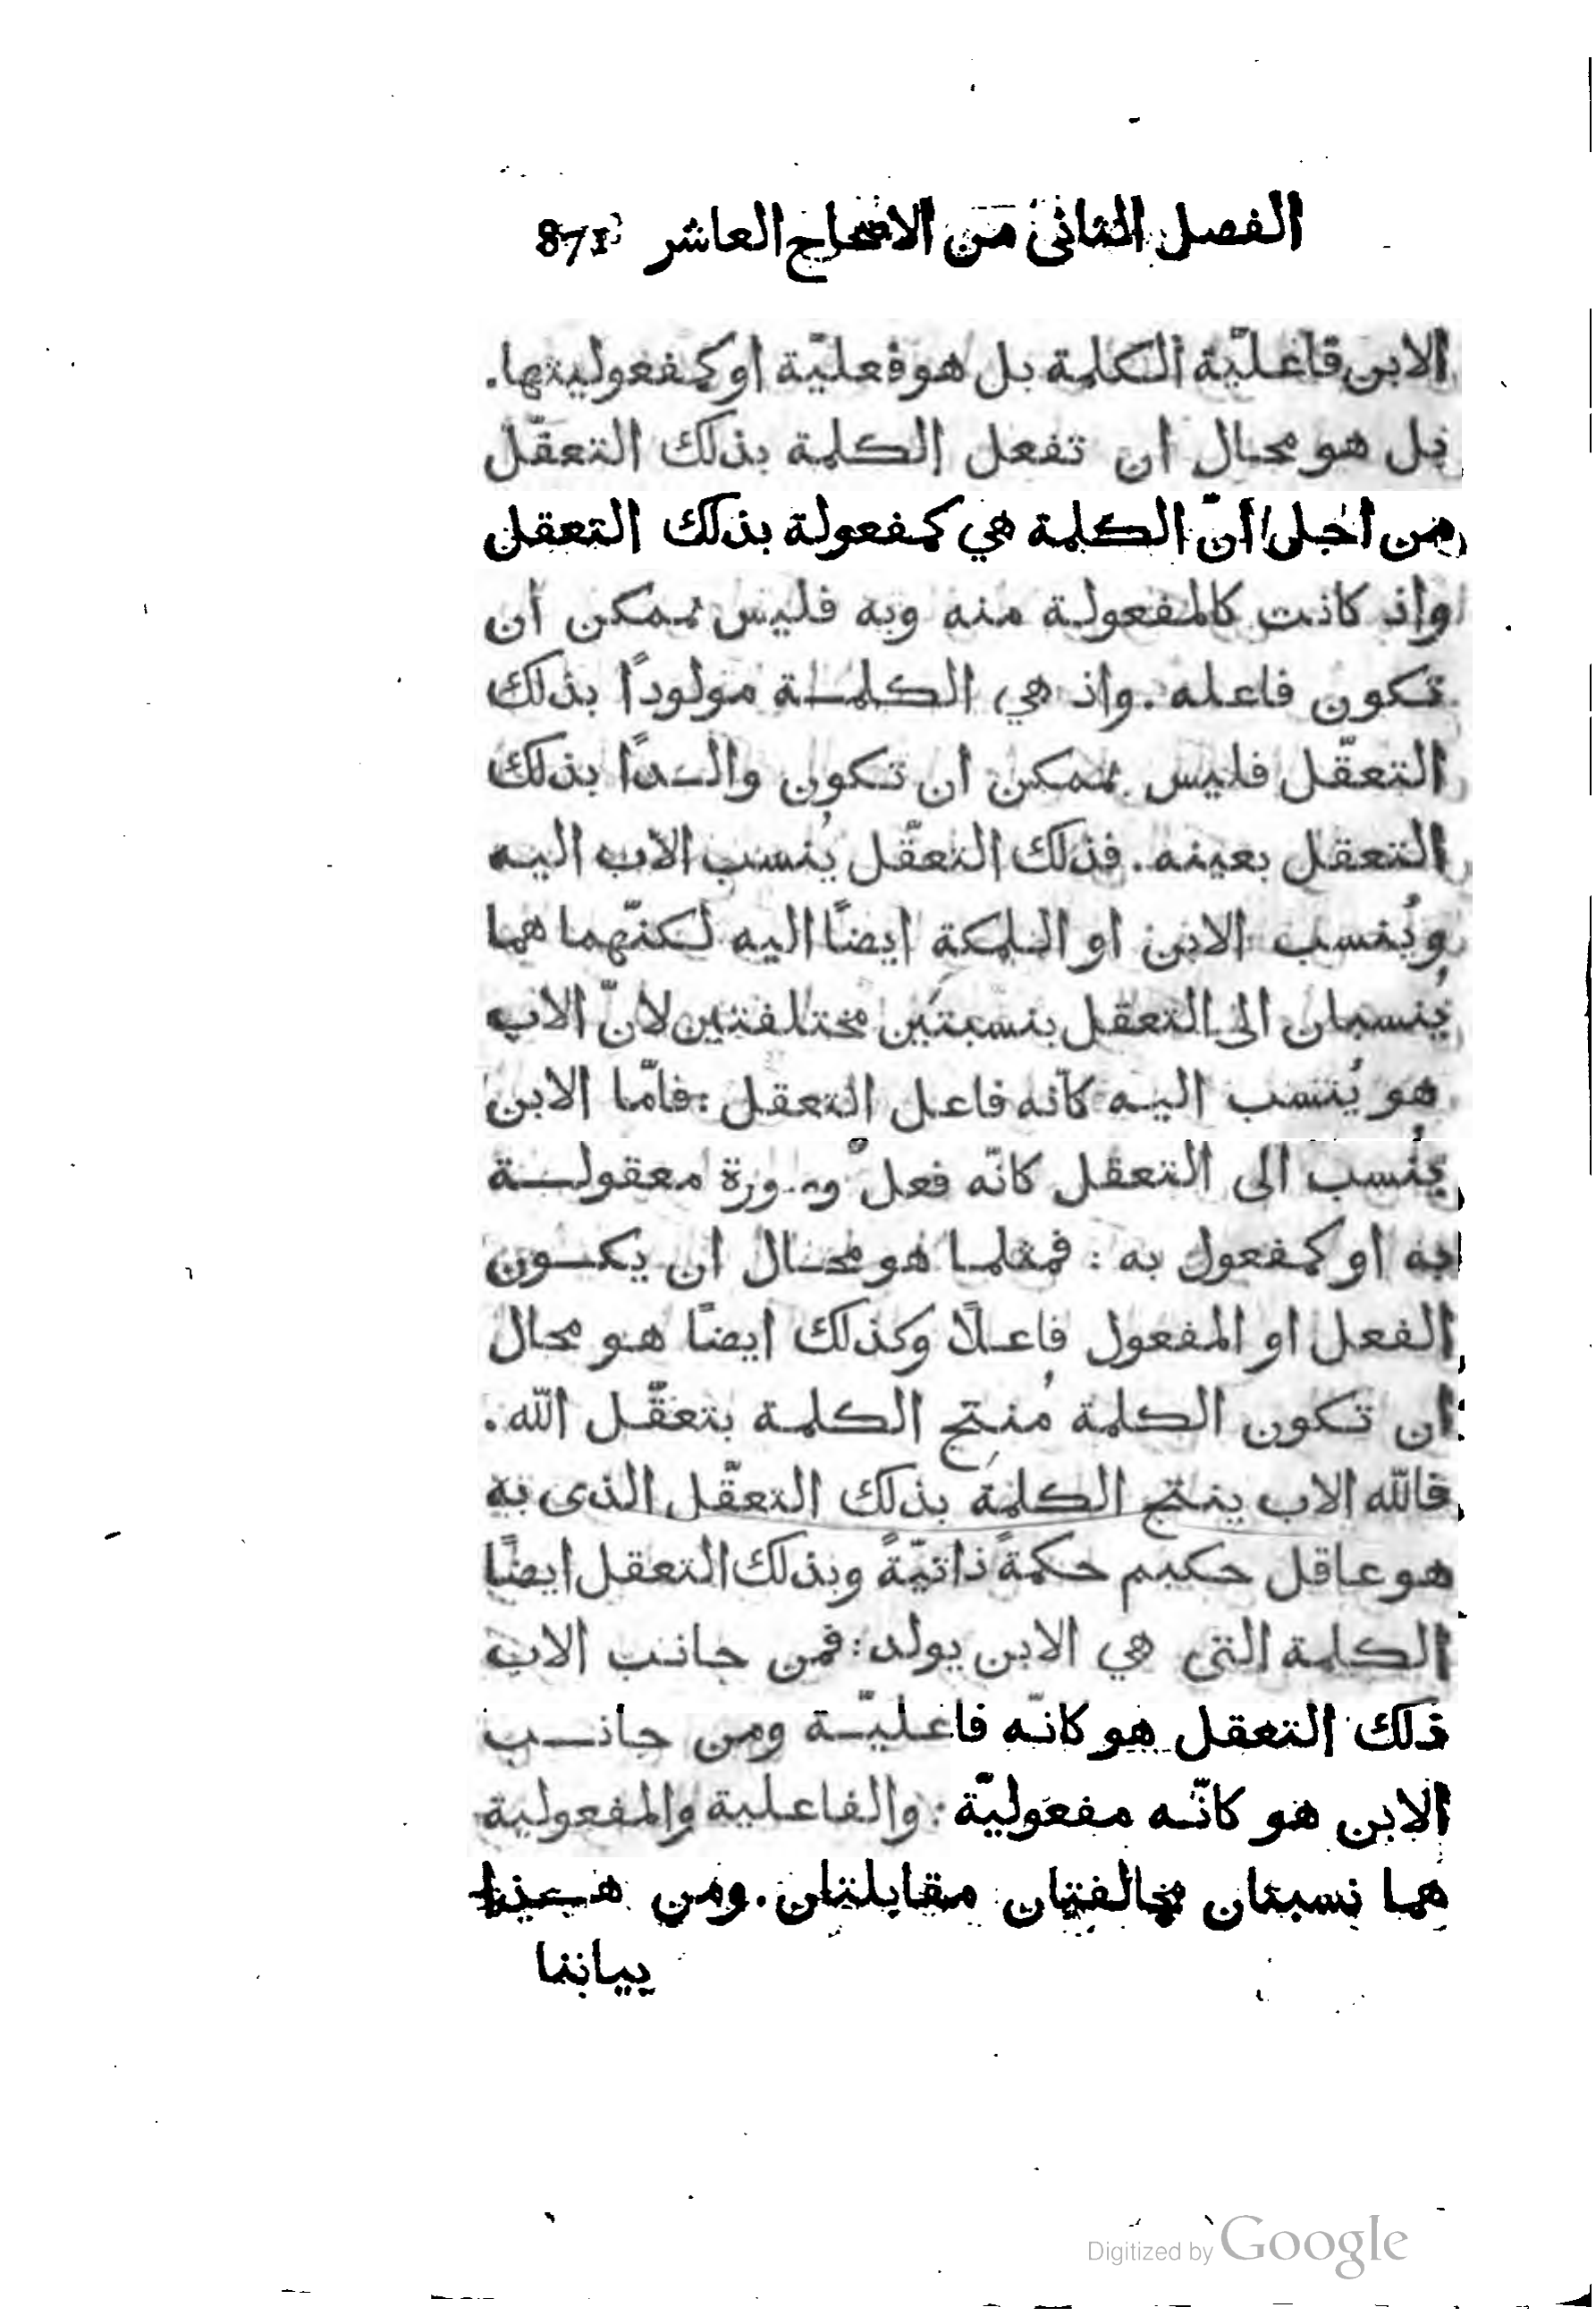 الفصل الثانى من الاصحاح العاشر 871
الابن فاعليّة الكلمة بل هو فعليّة او كمفعوليتها.
بل هو محال ان تفعل الكلمة بذلك التعقّل
من اجل انّ الكلمة هي كمفعولة بذلك التعقل
واذ كانت كالمفعولة منه وبه فليس بممكن ان
تكون فاعله. واذ هي الكلمة مولودًا بذلك
التعقّل فليس بممكن ان تكون والدًا بذلك
التعقل بعينه. فذلك التعقّل يُنسب الاب اليه
ويُنسب الابن او الـلمكة ايضًا اليه لكنّهما هما
يُنسبان الى التعقل بنسبتَين مختلفتين لانّ الاب
هو يُنسب اليه كانّه فاعل التعقل: فامّا الابن
يُنسب الى التعقل كانّه فعلٌ وصورة معقولة
به او كمفعول به: فمثلما هو محال ان يكون
الفعل او المفعول فاعلًا وكذلك ايضًا هو محال
ان تكون الكلمة مُنتِج الكلمة بتعقّل الله.
فالله الاب ينتج الكلمة بذلك التعقّل الذى به
هو عاقل حكيم حكمةً ذاتيّةً وبذلك التعقل ايضًا
الكلمة التى هي الابن يولد: فمن جانب الاب
ذلك التعقل هو كانّه فاعليّة ومن جانب
الابن هو كانّه مفعوليّة: والفاعلية والمفعولية
هما نسبتان مخالفتان مقابلتان. ومن هذا
بياننا
Digitized by Google